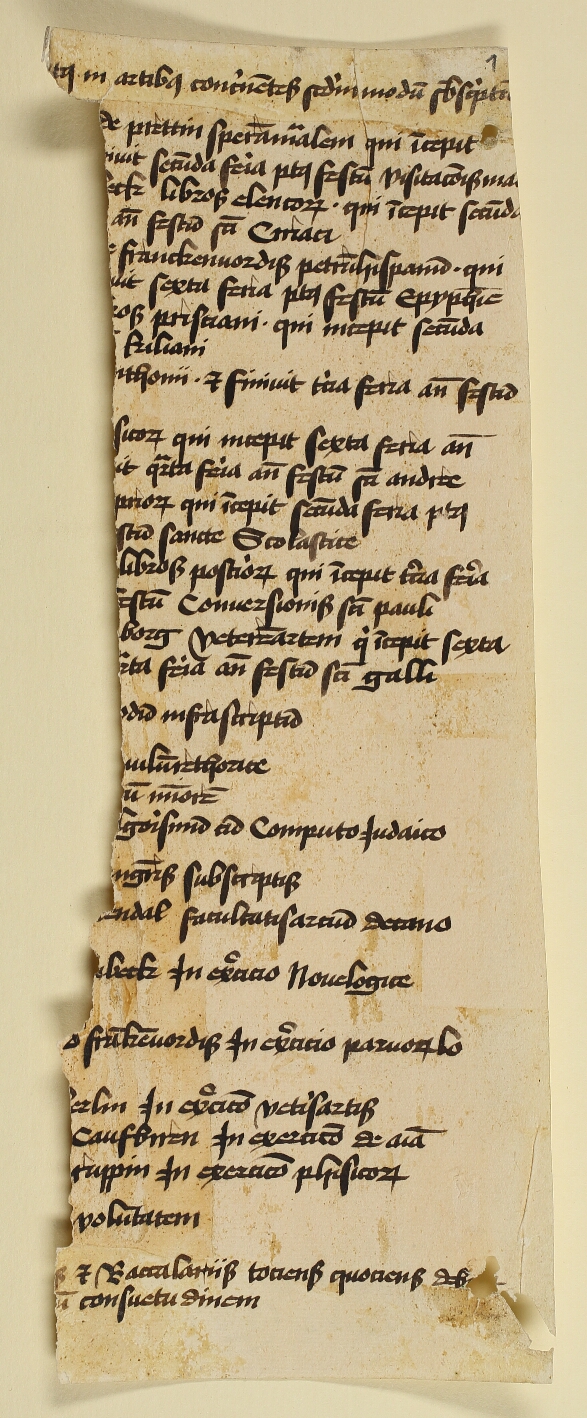 1
in artibus concernentes secundum modum subscriptum
de prettin speram materialem qui incepit
secunda feria post festum visitacionis ma
beck libros elencorum · qui incepit secunda
an festum sti Ciriaci
franckenuordis petrum hispanum · qui
uit sexta feria post festum Epyphanie
ros prisciani · qui incepit secunda
kiliani
nthonii · & finiuit tercia feria an festum
sicorum qui incepit sexta feria an
it quarta feria an festum sti andree
priorum qui incepit secunda feria post
stum sancte Scolastice
libros posteriorum qui incepit tercia feria
festum Conuersionis sti pauli
borg Veterem artem qui incepit sexta
rta feria an festum sti galli
odum infrascriptum
rethorice
um minorem
gorismum cum Computo Judaico
subscriptis
endal facultatis arcium decano
beck In exercicio Noue logice
o franckenuordis In exercicio paruorum lo
erlin In exercicio veteris artis
Caufburen In exercicio de anima
ruppin In exercicio phisicorum
voluntatem
& Baccalariis tociens quociens
consuetudinem